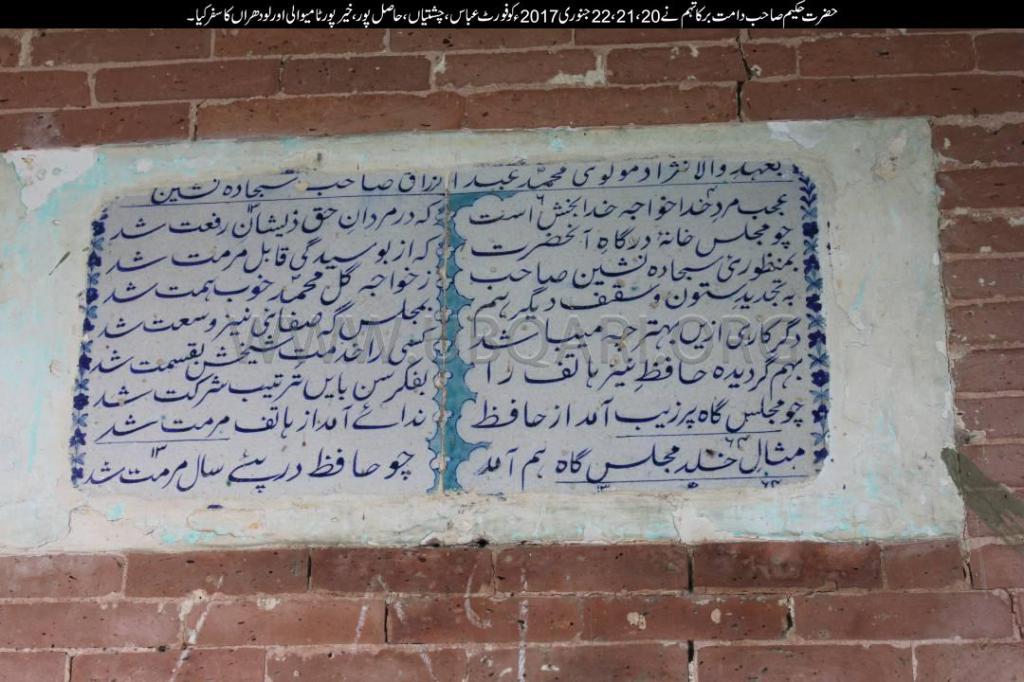 حضرت حکیم صاحب دامت برکاتہم نے 20، 21، 22 جنوری 2017ء کو فورٹ عباس، چشتیاں، حاصل پور، خیر پور ٹامیوالی اور لودھراں کا سفر کیا۔
بعہدِ والا نژاد مولوی محمّد عبد الرزاق صاحب سجادہ نشین
عجب مرد خدا خواجہ خدا بخش است کہ در مردانِ حق ذیشان رفعت شد
چو مجلس خانۂ درگاہِ آنحضرت کہ از بوسیدگی قابل مرمت شد
بمنظوریٔ سجادہ نشین صاحب ز خواجہ گل محمّد خوب ہمت شد
بہ تجدید ستون و سقف دیگر ہم بمجلس گہ صفائی نیز وسعت شد
دگر کاری ازیں بہتر چہ میباشد کسی را خدمتِ شیخش بقسمت شد
بہم گردیدہ حافظ نیز ہاتف را بفکر سن بایں ترتیب شرکت شد
چو مجلس گاہ پر زیب آمد از حافظ ندائے آمد از ہاتف مرمت شد
مثال خلد مجلس گاہ ہم آمد چو حافظ در پئے سال مرمت شد
WWW.UBQARI.ORG